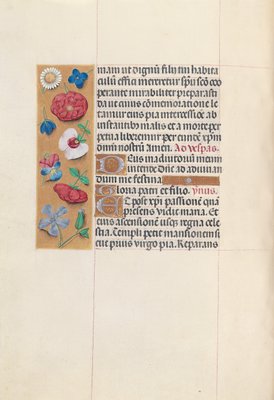 mam ut dignū filij tui habita
culū effici mereretur spū sctō co
operante mirabiliter preparasti
da ut cuius cōmemoratione le
tamur eius pia intercessiōe ab
instantibus malis et a morte per
petua liberemur Per eundē xp̄m
dn̄m nostrū Amen. Ad vesp̄as
Deus in adiutoriū meum
intende Dn̄e ad adiuuan
dum me festina
Gloria patri et filio. Ymn̄s.
Et post xpi passionē quā
presens vidit maria. Et
eius ascensionē usq; regna cele
stia. Templi petit mansionem
sit prius virgo pia. Reparans